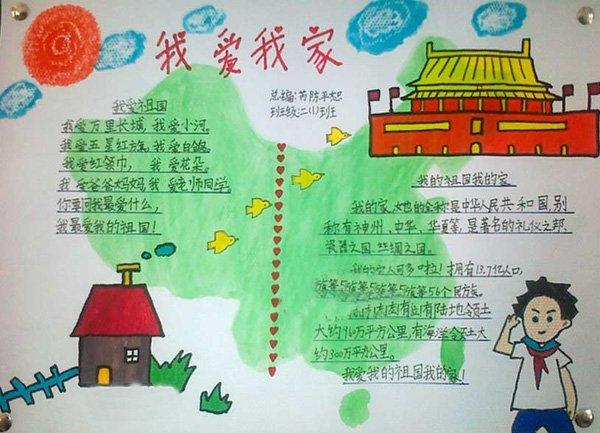 我爱我家
班级:二(1)班
我爱祖国
我爱万里长城,我爱小河。
我爱五星红旗,我爱白鸽。
我爱红领巾, 我爱花朵。
我爱爸爸妈妈,我爱老师同学。
你要问我最爱什么,
我最爱我的祖国!
我的祖国我的家
我的家,她的全称是中华人民共和国,别
称有神州、中华、华夏等,是著名的礼仪之邦、
瓷器之国、丝绸之国。
我的家人可多啦!拥有13.7亿人口,
族等56个民族。
有陆地领土
大约960万平方公里,有海洋领土大
约300万平方公里。
我爱我的祖国我的家!